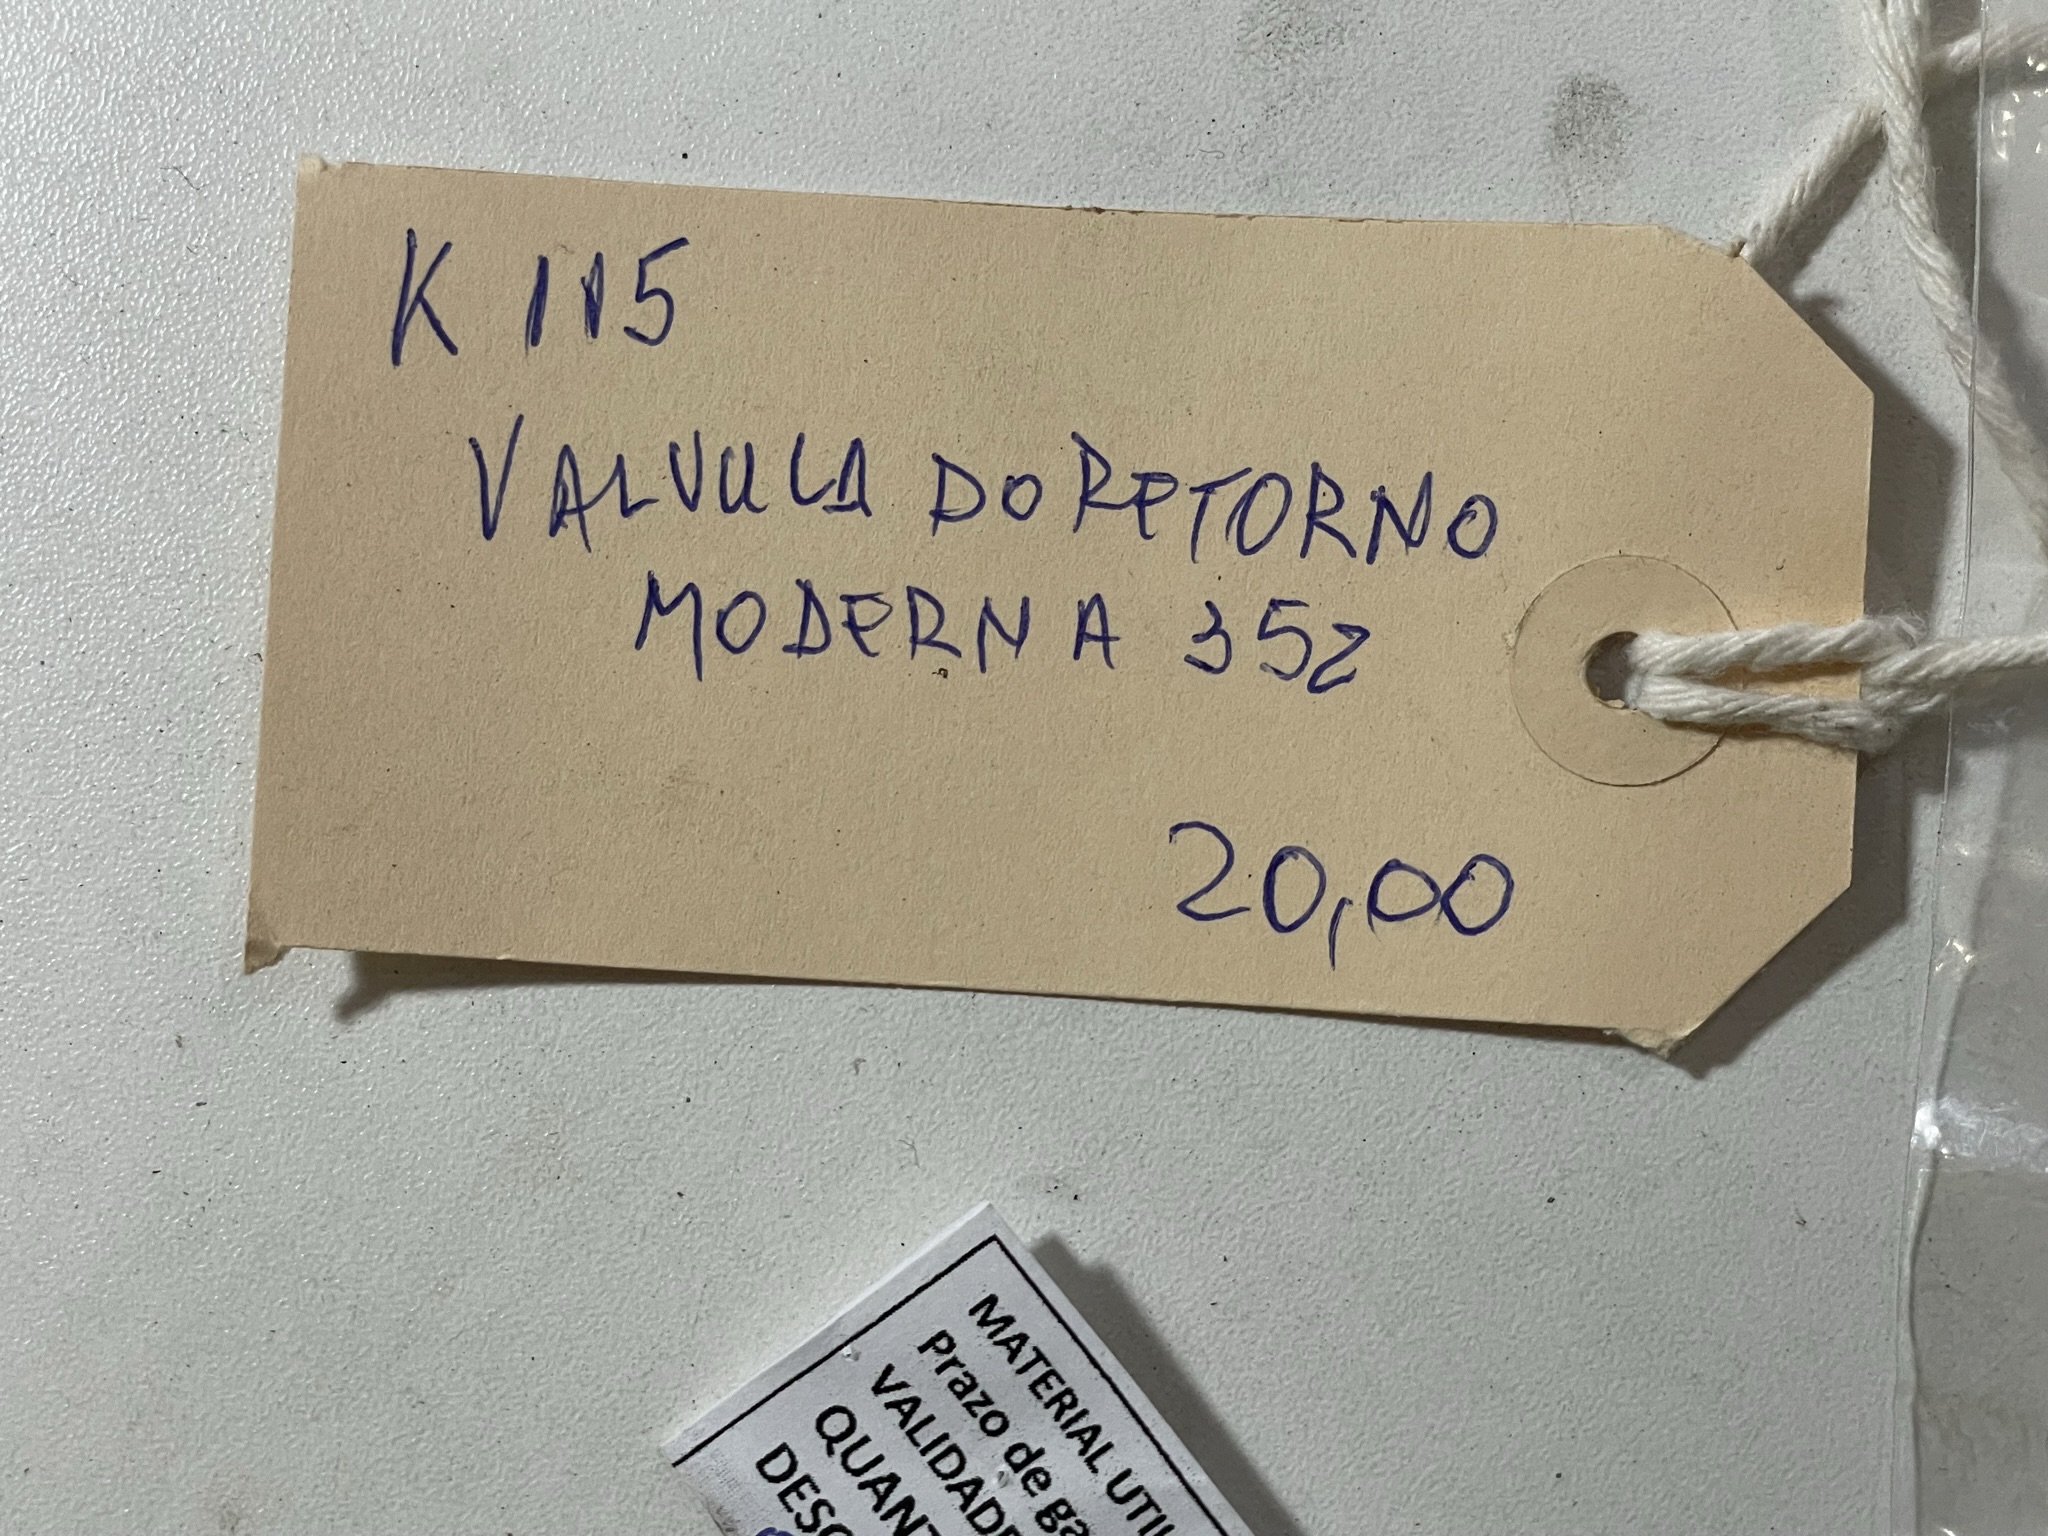 K 115
VALVULA DO RETORNO
MODERNA 352
20,00
MATERIAL UTIL
Prazo de ga
VALIDADE
QUANT
DESC